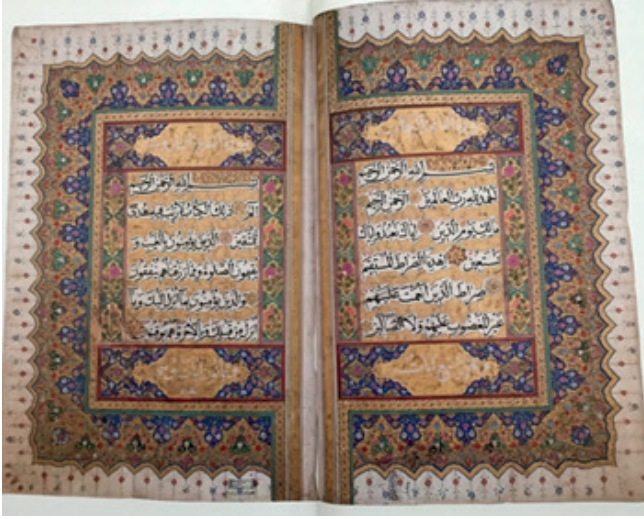 بسم الله الرحمن الرحيم
الحمد لله رب العالمين الرحمن الرحيم
مالك يوم الدين اياك نعبد واياك
نستعين اهدنا الصراط المستقيم
صراط الذين انعمت عليهم
غير المغضوب عليهم ولا الضالين
بسم الله الرحمن الرحيم
الم ذلك الكتاب لا ريب فيه هدى
للمتقين الذين يؤمنون بالغيب و
يقيمون الصلوة ومما رزقناهم ينفقون
والذين يؤمنون بما انزل اليك وما
انزل من قبلك وبالاخرة هم يوقنون